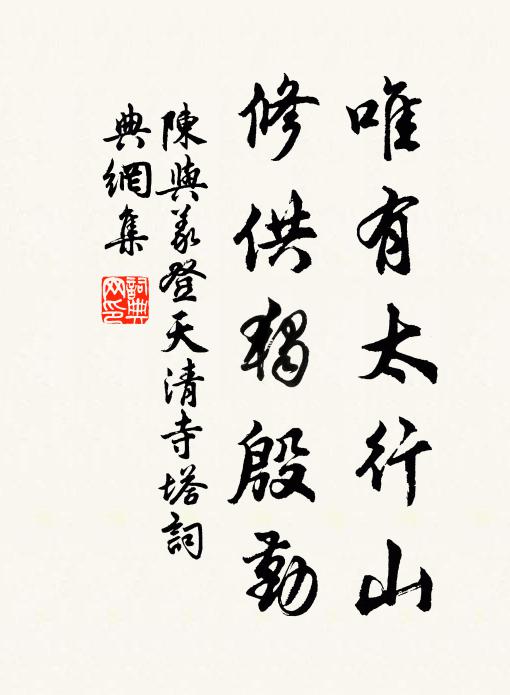 唯有太行山
修供獨殷勤
陳與義登天清寺塔詞
典網集
詞典網印